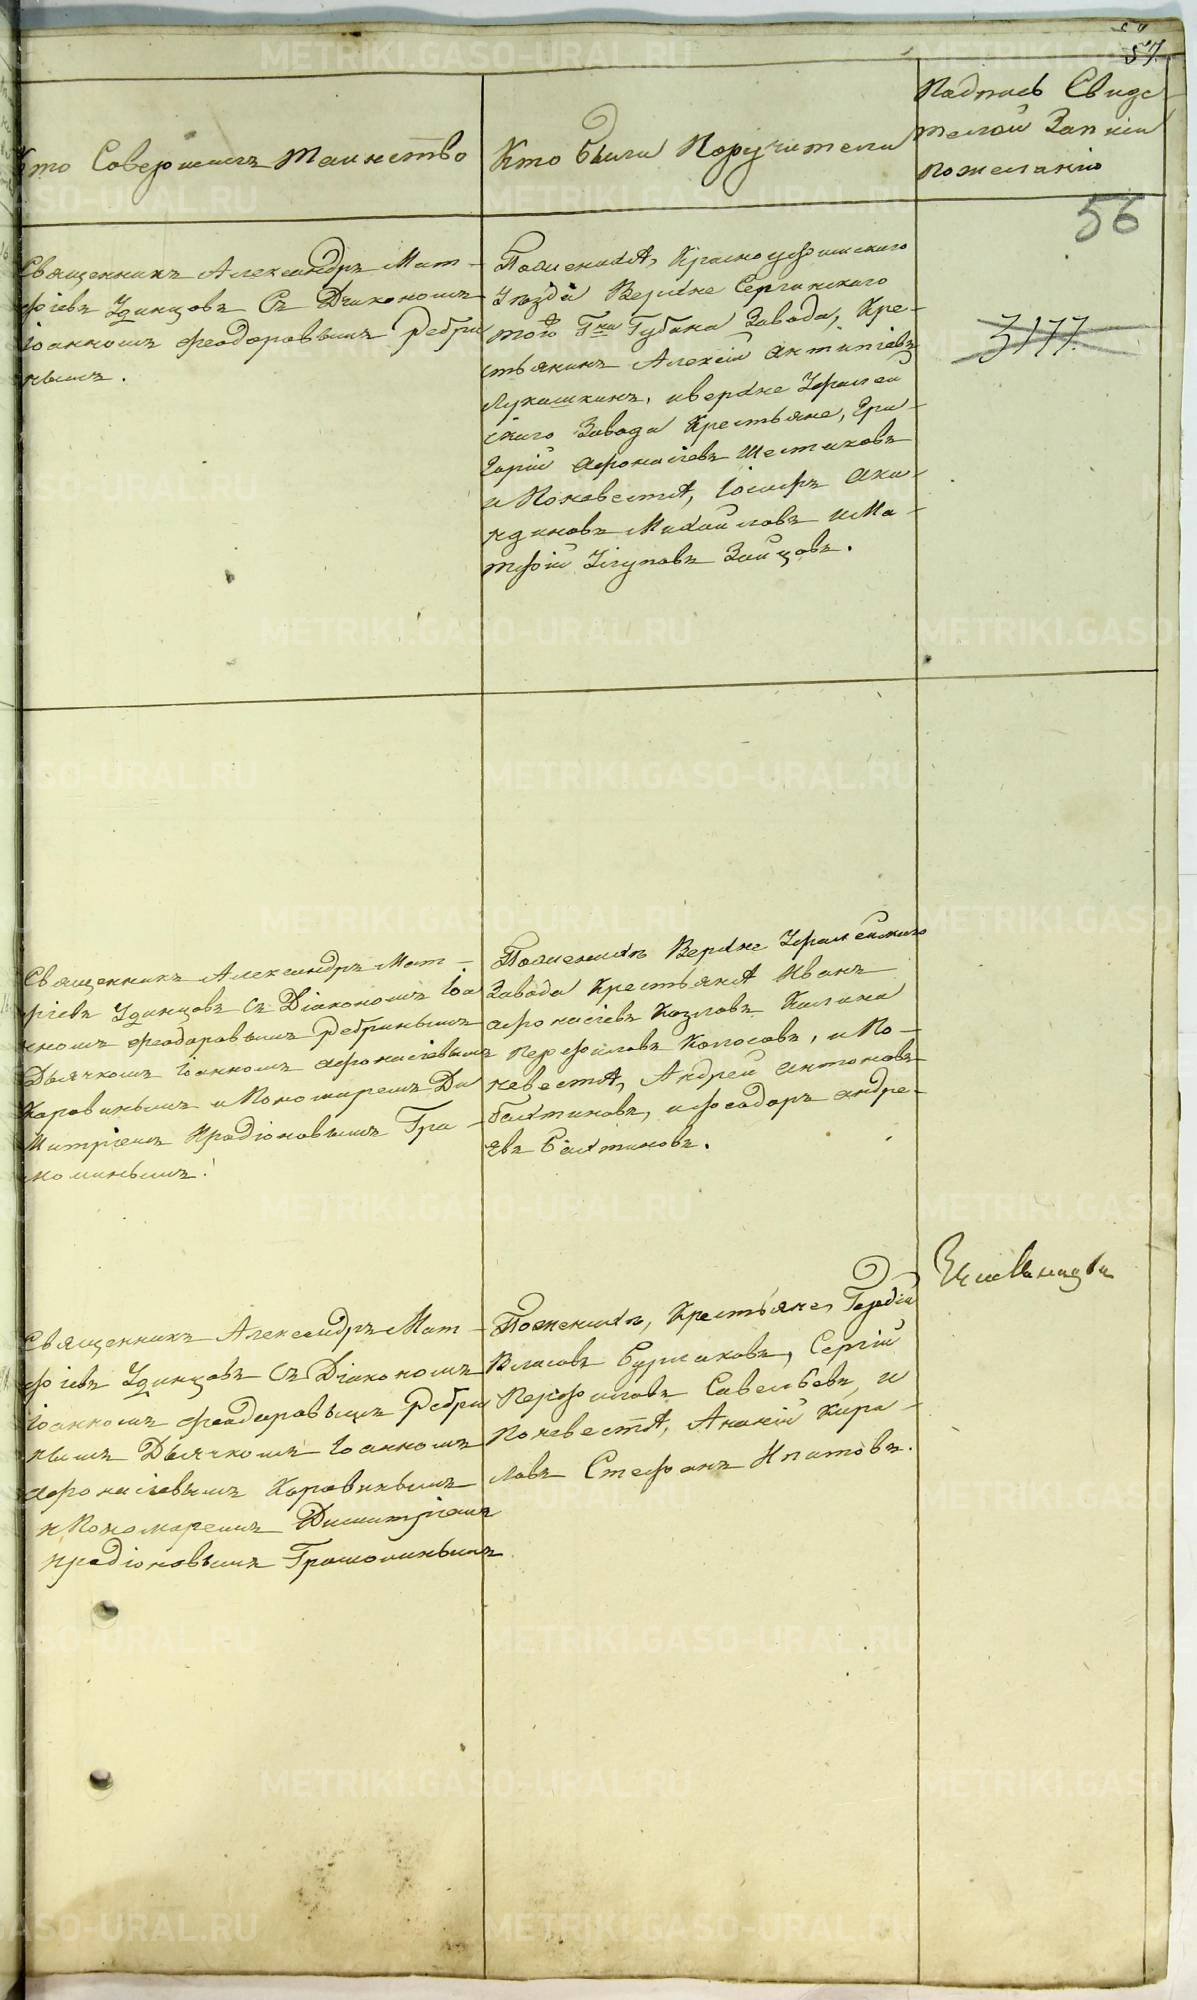 57.
Кто Совершилъ таинство
Кто были Поручители
Подпись Свиде
телей Записи
по желанію
56
3177.
Священникъ Александръ Мат-
фіевъ Удинцовъ Съ Діакономъ
Іоанномъ Феодоровымъ Ребри
нымъ.
По женихѣ, Красноуфимскаго
Уѣзда Верхне Сергинскаго
Гна Губина Завода, Кре-
стьянинъ Алексій Антипіевъ
Лукашкинъ, и верхне Уфалей
скаго Завода Крестьяне, Гри
горій Афонасіевъ Шестаковъ
и По невестѣ, Іосифъ Аки-
ндиновъ Михайловъ и Ма-
тфій Зайцовъ.
Священникъ Александръ Мат-
фіевъ Удинцовъ съ Діакономъ Іоа
нномъ Феодоровымъ Ребринымъ
Дьячкомъ Іоанномъ Афонасіевымъ
Коровинымъ и Пономаремъ Ди
митріемъ Иродіоновымъ Гра-
молинымъ.
По женихѣ Верхне Уфалейскаго
Завода Крестьянѣ Иванъ
Афонасіевъ Козловъ Калина
Перфиловъ Колосовъ, и По-
невестѣ, Андрей Антоновъ
Бахтиновъ, и Феодоръ Андре-
евъ Бахтиновъ.
Священникъ Александръ Мат-
фіевъ Удинцовъ Съ Діакономъ
Іоанномъ Феодоровымъ Ребри
нымъ Дьячкомъ Іоанномъ
Афонасіевымъ Коровинымъ
и Пономаремъ Димитріемъ
Иродіоновымъ Грамолинымъ
По женихѣ, Крестьяне,
Власовъ Бурмаковъ, Сергій
Перфиловъ Савельевъ, и
По невестѣ, Ананій Кири-
ловъ Стефанъ Ипатовъ.